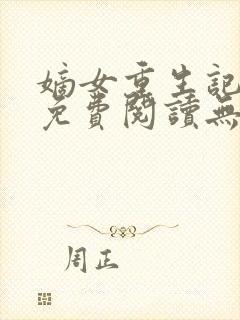 嫡女重生記
免費閱讀無
周正